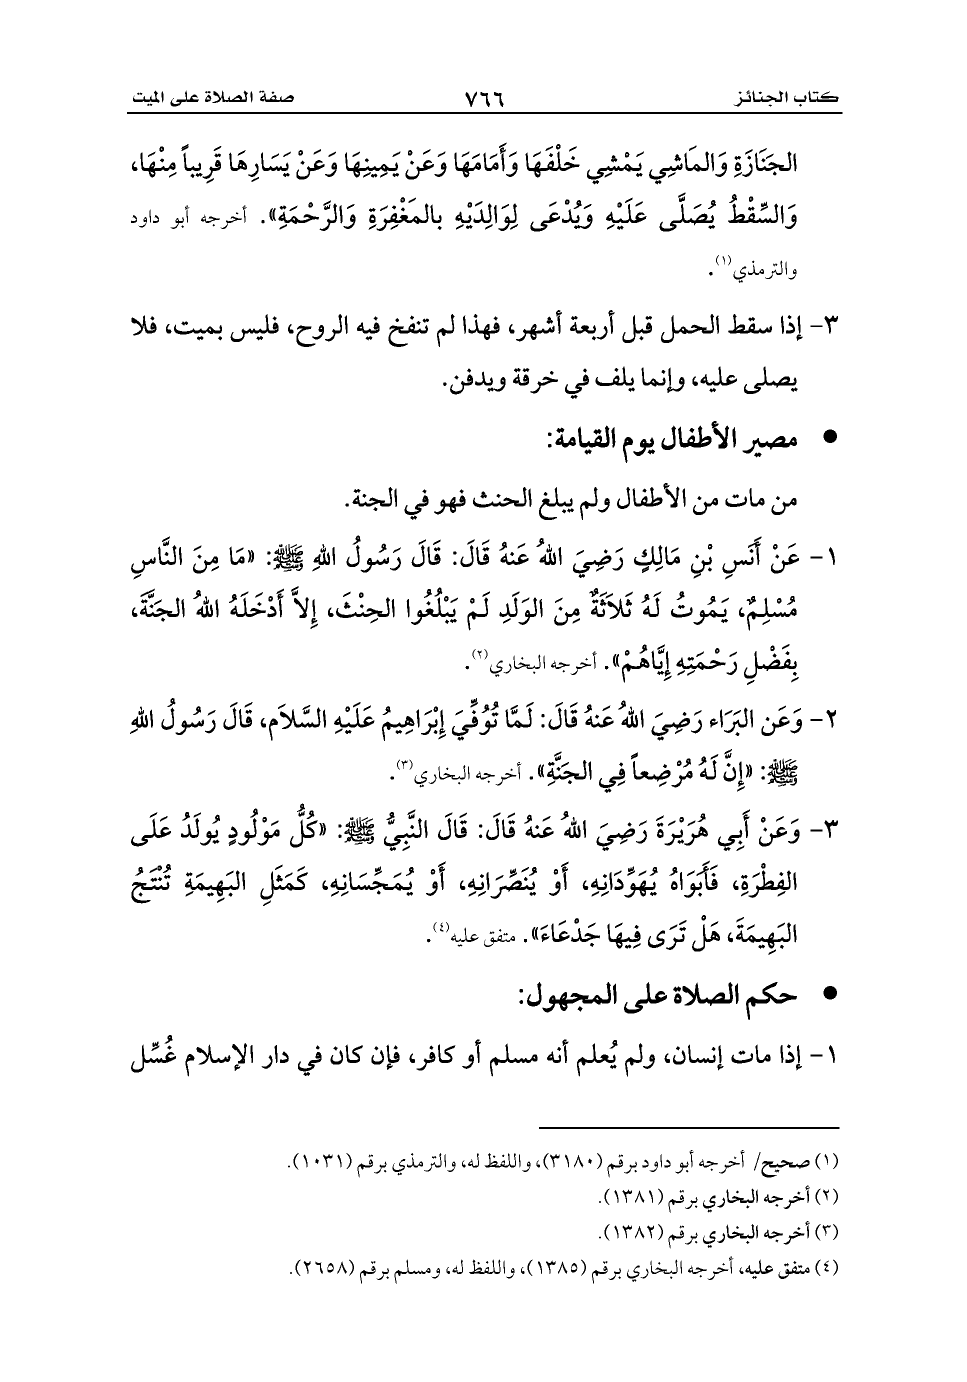 كتاب الجنائز ٧٦٦ صفة الصلاة على الميت
الجَنَازَةِ وَالمَاشِي يَمْشِي خَلْفَهَا وَأَمَامَهَا وَعَنْ يَمِينِهَا وَعَنْ يَسَارِهَا قَرِيباً مِنْهَا،
وَالسِّقْطُ يُصَلَّى عَلَيْهِ وَيُدْعَى لِوَالِدَيْهِ بالمَغْفِرَةِ وَالرَّحْمَةِ». أخرجه أبو داود
والترمذي(١).
٣- إذا سقط الحمل قبل أربعة أشهر، فهذا لم تنفخ فيه الروح، فليس بميت، فلا
يصلى عليه، وإنما يلف في خرقة ويدفن.
● مصير الأطفال يوم القيامة:
من مات من الأطفال ولم يبلغ الحنث فهو في الجنة.
١- عَنْ أَنَسِ بْنِ مَالِكٍ رَضِيَ اللهُ عَنهُ قَالَ: قَالَ رَسُولُ اللهِ ﷺ: «مَا مِنَ النَّاسِ
مُسْلِمٌ، يَمُوتُ لَهُ ثَلاَثَةٌ مِنَ الوَلَدِ لَمْ يَبْلُغُوا الحِنْثَ، إِلاَّ أَدْخَلَهُ اللهُ الجَنَّةَ،
بِفَضْلِ رَحْمَتِهِ إِيَّاهُمْ». أخرجه البخاري(٢).
٢- وَعَن البَرَاء رَضِيَ اللهُ عَنهُ قَالَ: لَمَّا تُوُفِّيَ إِبْرَاهِيمُ عَلَيْهِ السَّلاَم، قَالَ رَسُولُ اللهِ
ﷺ: «إِنَّ لَهُ مُرْضِعاً فِي الجَنَّةِ». أخرجه البخاري(٣).
٣- وَعَنْ أَبِي هُرَيْرَةَ رَضِيَ اللهُ عَنهُ قَالَ: قَالَ النَّبِيُّ ﷺ: «كُلُّ مَوْلُودٍ يُولَدُ عَلَى
الفِطْرَةِ، فَأَبَوَاهُ يُهَوِّدَانِهِ، أَوْ يُنَصِّرَانِهِ، أَوْ يُمَجِّسَانِهِ، كَمَثَلِ البَهِيمَةِ تُنْتَجُ
البَهِيمَةَ، هَلْ تَرَى فِيهَا جَدْعَاءَ». متفق عليه(٤).
● حكم الصلاة على المجهول:
١- إذا مات إنسان، ولم يُعلم أنه مسلم أو كافر، فإن كان في دار الإسلام غُسِّل
(١) صحيح/ أخرجه أبو داود برقم (٣١٨٠)، واللفظ له، والترمذي برقم (١٠٣١).
(٢) أخرجه البخاري برقم (١٣٨١).
(٣) أخرجه البخاري برقم (١٣٨٢).
(٤) متفق عليه، أخرجه البخاري برقم (١٣٨٥)، واللفظ له، ومسلم برقم (٢٦٥٨).